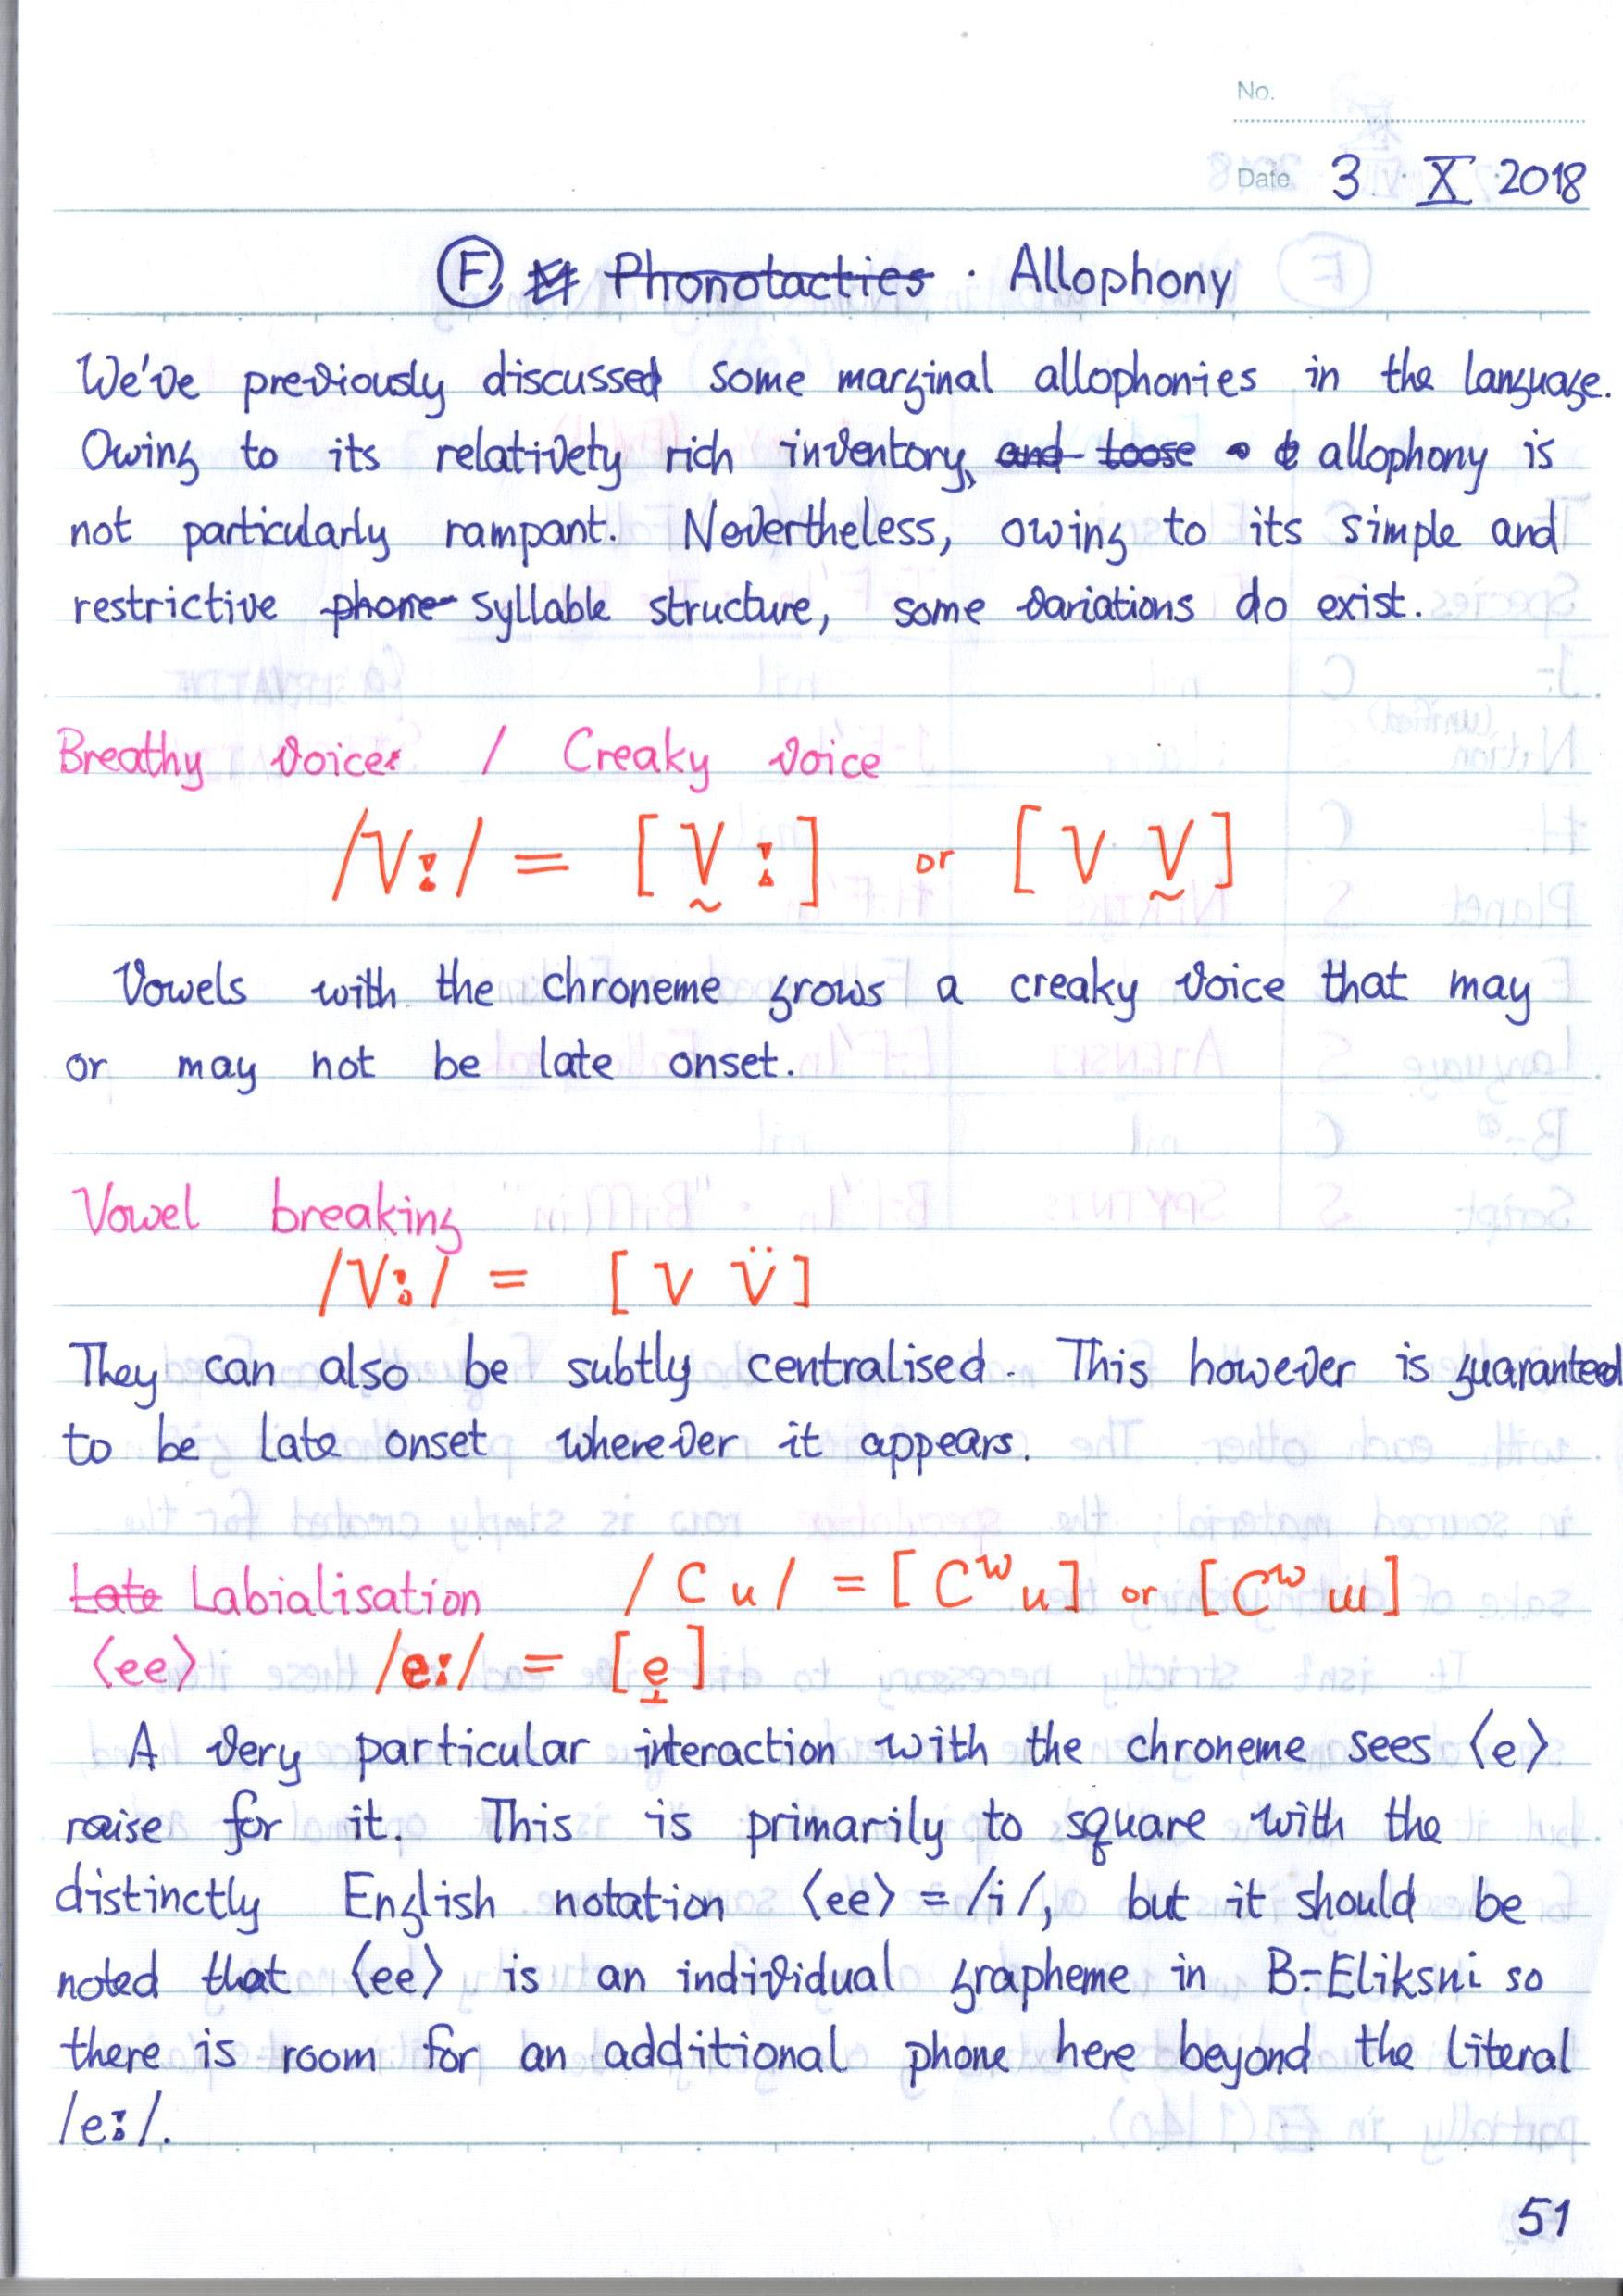 No.
Date 3 X 2018
Ⓕ ~~Phonotactics~~ · Allophony
We've previously discussed some marginal allophonies in the language.
Owing to its relatively rich inventory, ~~and loose~~ allophony is
not particularly rampant. Nevertheless, owing to its simple and
restrictive ~~phone~~ syllable structure, some variations do exist.
Breathy voice / Creaky voice
/Vː/ = [V̰ː] or [V V̰]
Vowels with the chroneme grows a creaky voice that may
or may not be late onset.
Vowel breaking
/Vː/ = [V V̈]
They can also be subtly centralised. This however is guaranteed
to be late onset wherever it appears.
~~Late~~ Labialisation /Cu/ = [Cʷu] or [Cʷɯ]
⟨ee⟩ /eː/ = [e̝]
A very particular interaction with the chroneme sees ⟨e⟩
raise for it. This is primarily to square with the
distinctly English notation ⟨ee⟩ = /i/, but it should be
noted that ⟨ee⟩ is an individual grapheme in B:-Eliksni so
there is room for an additional phone here beyond the literal
/eː/.
51